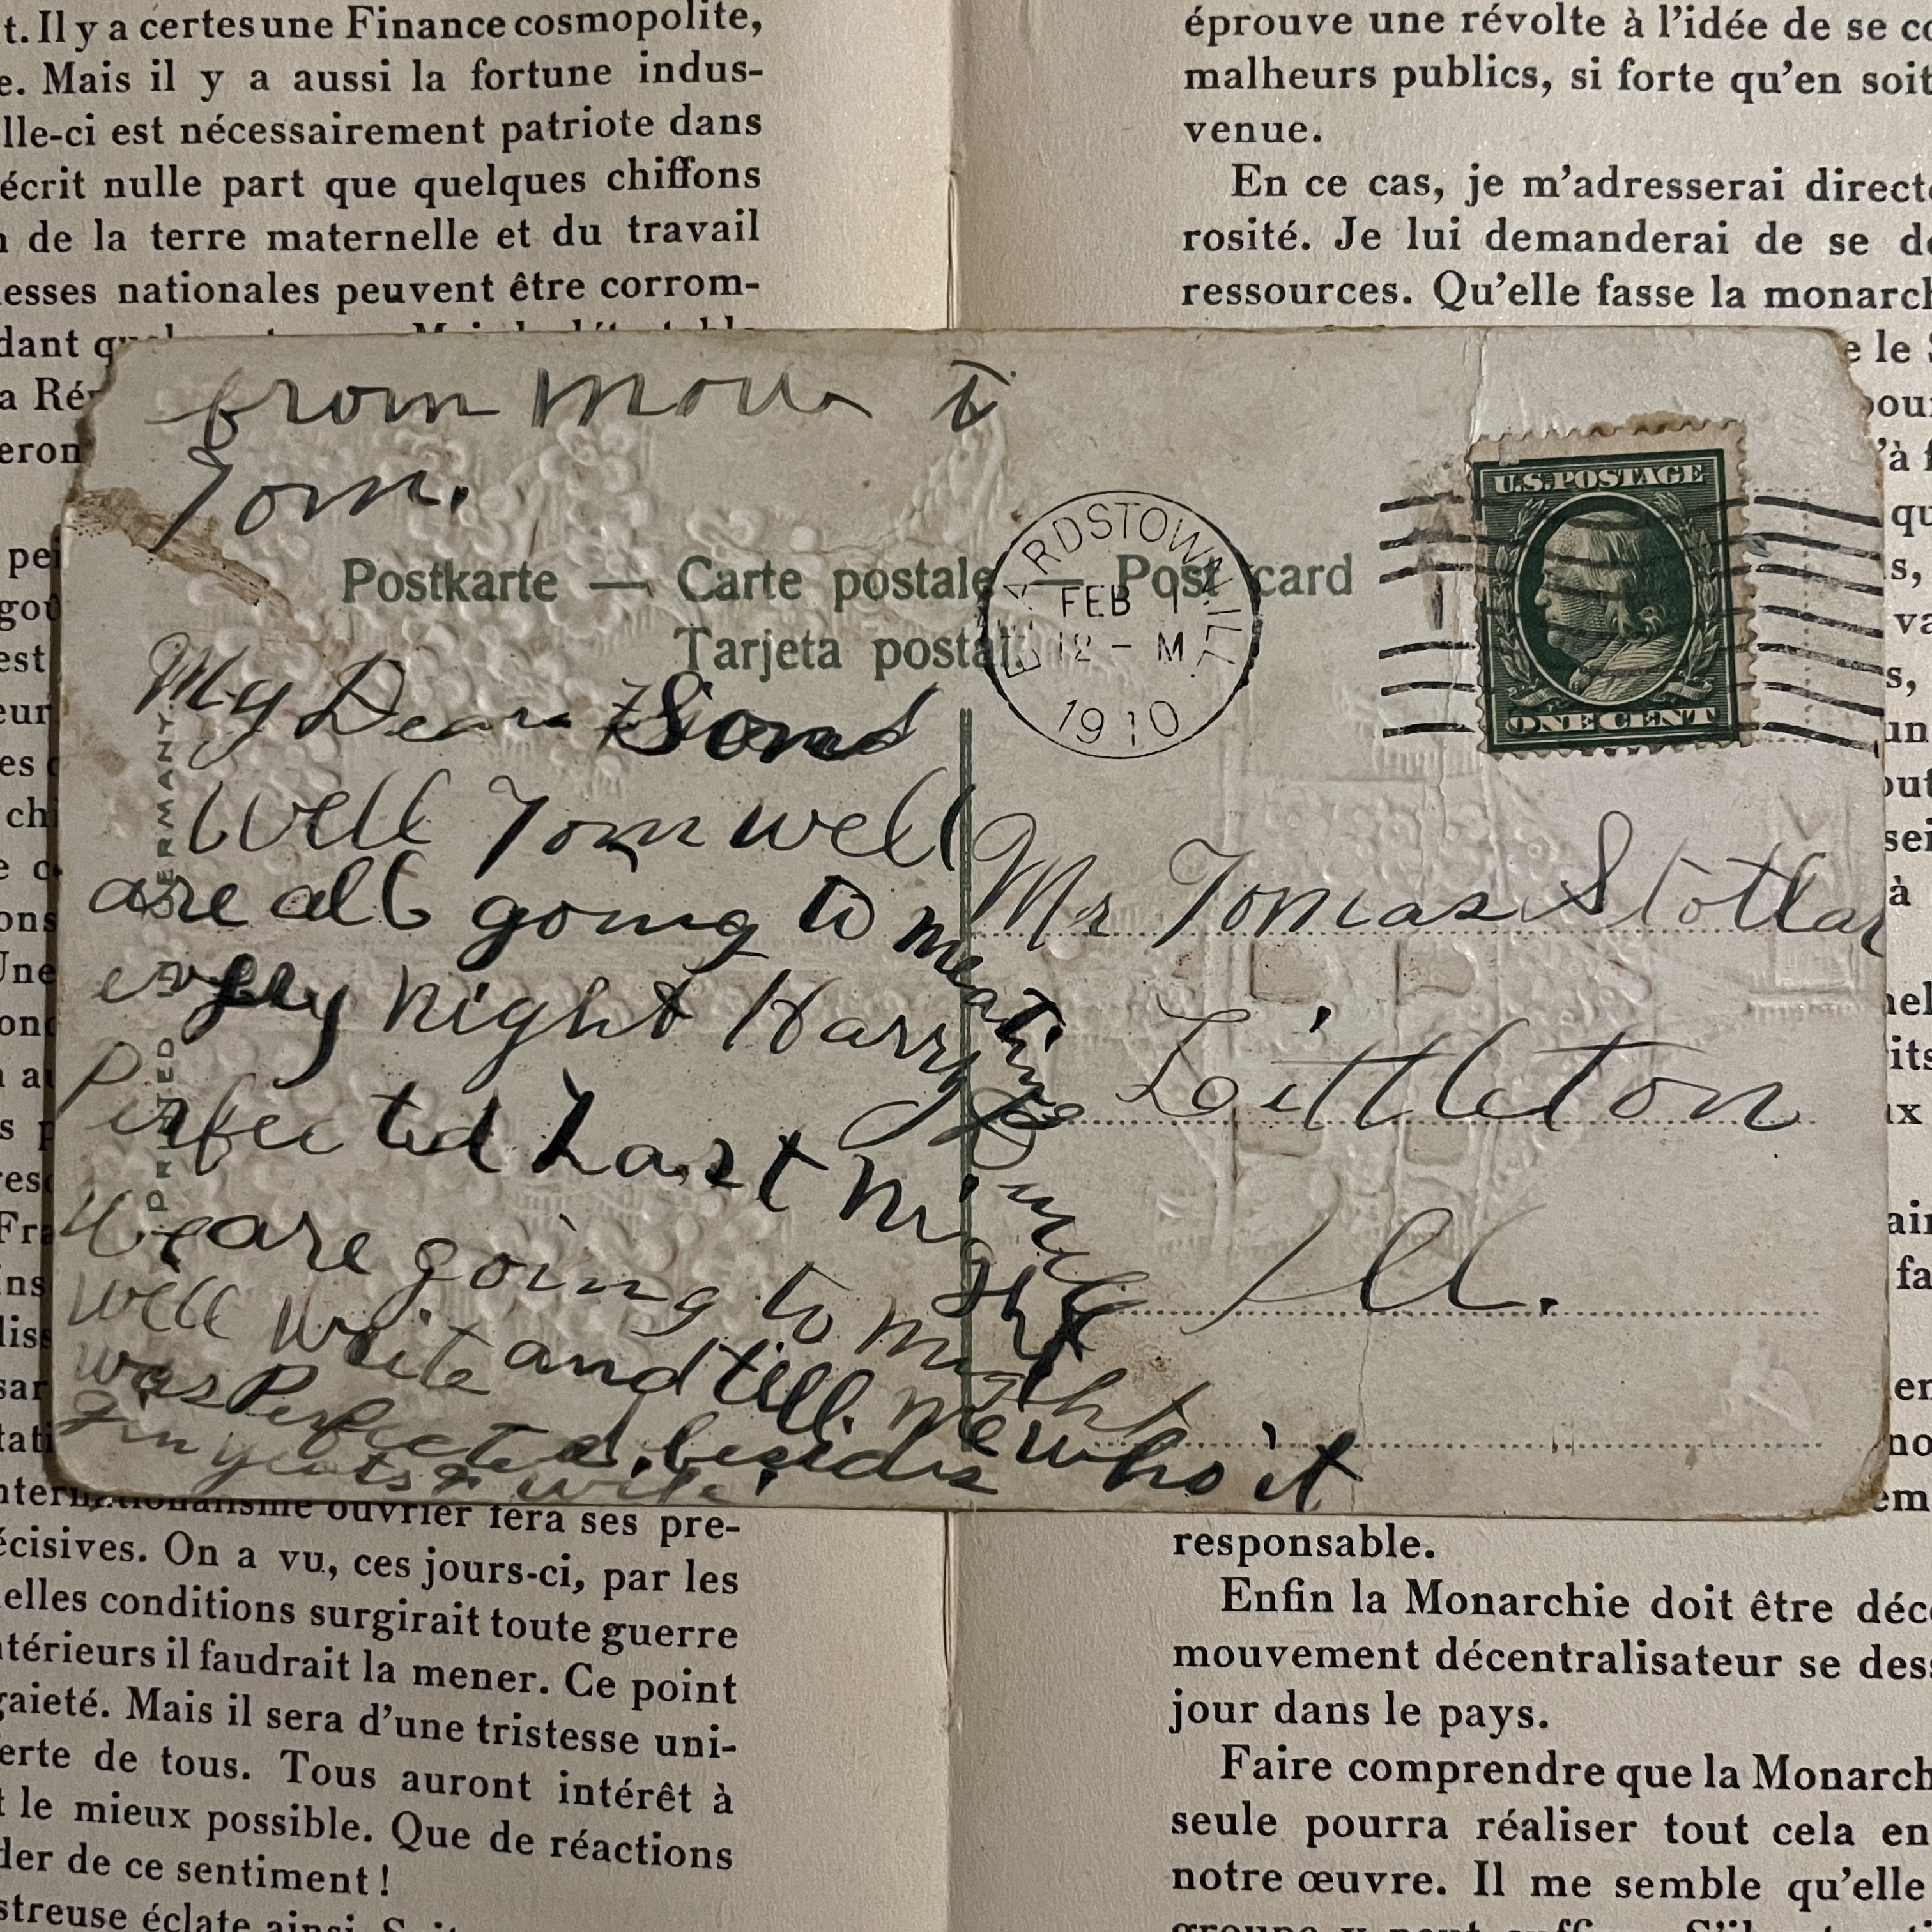 t. Il y a certes une Finance cosmopolite,
e. Mais il y a aussi la fortune indus-
lle-ci est nécessairement patriote dans
écrit nulle part que quelques chiffons
n de la terre maternelle et du travail
esses nationales peuvent être corrom-
dant
a Ré
eron
éprouve une révolte à l'idée de se co
malheurs publics, si forte qu'en soit
venue.
En ce cas, je m'adresserai directe
rosité. Je lui demanderai de se dé
ressources. Qu'elle fasse la monarch
e le S
from
Tom.
Postkarte — Carte postale — Post card
Tarjeta postal
BEARDSTOWN, ILL.
FEB 1
12 - M
1910
U.S. POSTAGE
ONE CENT
PRINTED IN GERMANY
My Dear Son
Well Tom well
are all going to meating
evry night Harry
Perfected Last night
We are going to night
Well write and till me who it
was Perfected besides
Mr Tomas Stotlar
Leittleton
Ill.
internationalisme ouvrier fera ses pre-
écisives. On a vu, ces jours-ci, par les
elles conditions surgirait toute guerre
ntérieurs il faudrait la mener. Ce point
gaieté. Mais il sera d'une tristesse uni-
erte de tous. Tous auront intérêt à
t le mieux possible. Que de réactions
der de ce sentiment !
streuse éclate ainsi.
responsable.
Enfin la Monarchie doit être déce
mouvement décentralisateur se dess
jour dans le pays.
Faire comprendre que la Monarch
seule pourra réaliser tout cela en
notre œuvre. Il me semble qu'elle